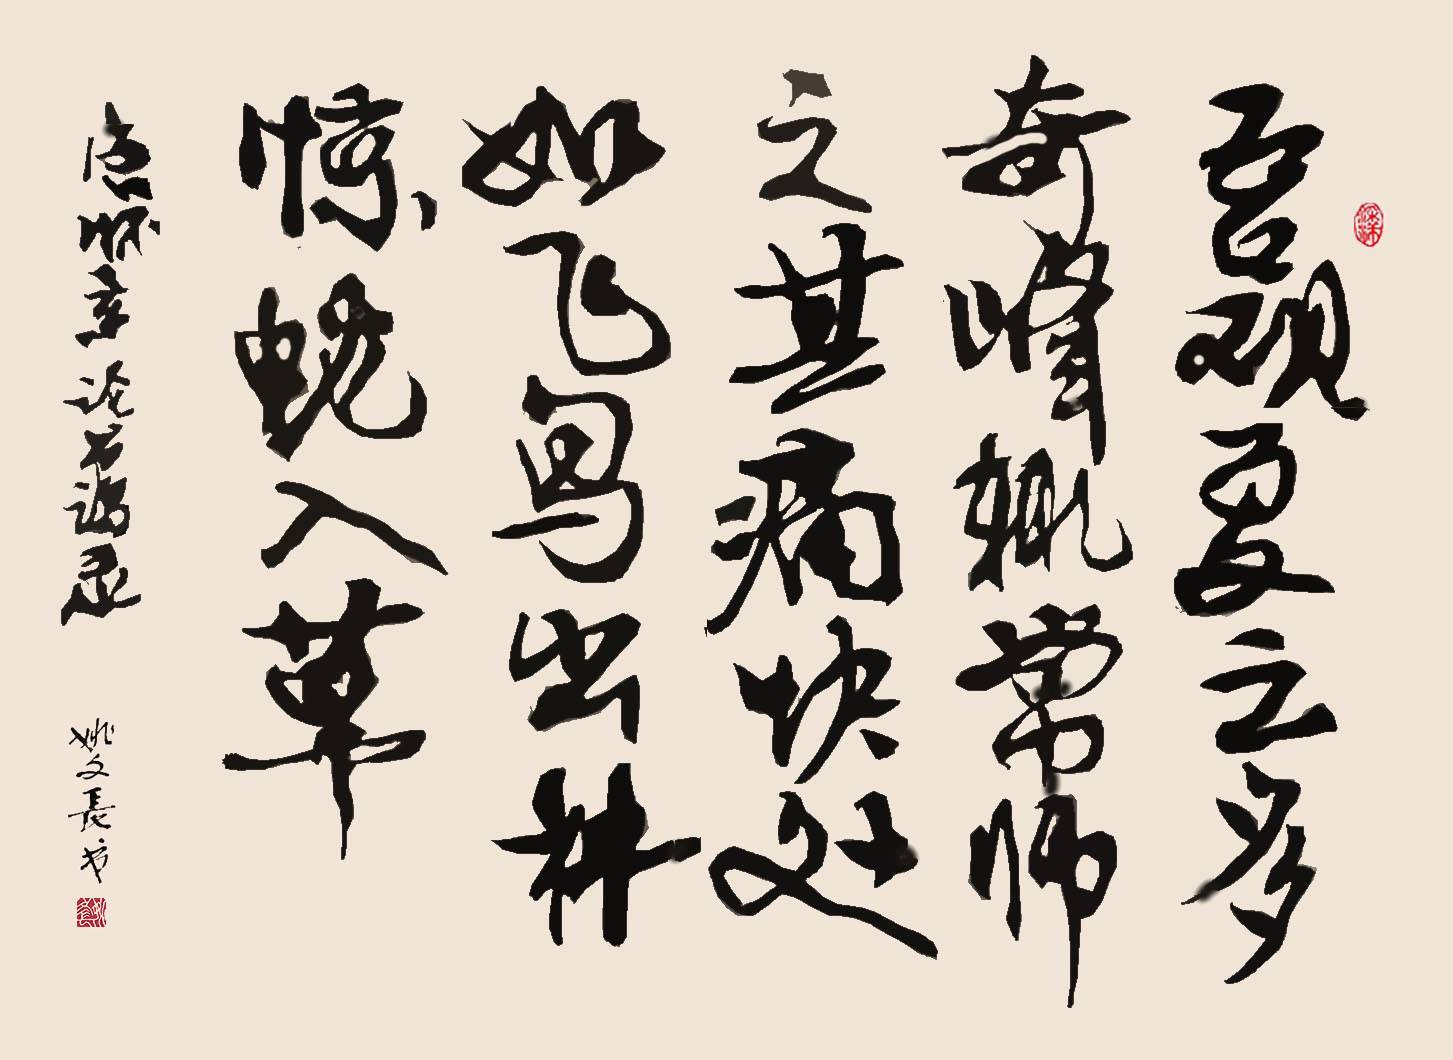 吾观夏之多
奇峰辄常师
之其痛快处
如飞鸟出林
惊蛇入草
唐怀素论书语录
姚文長书